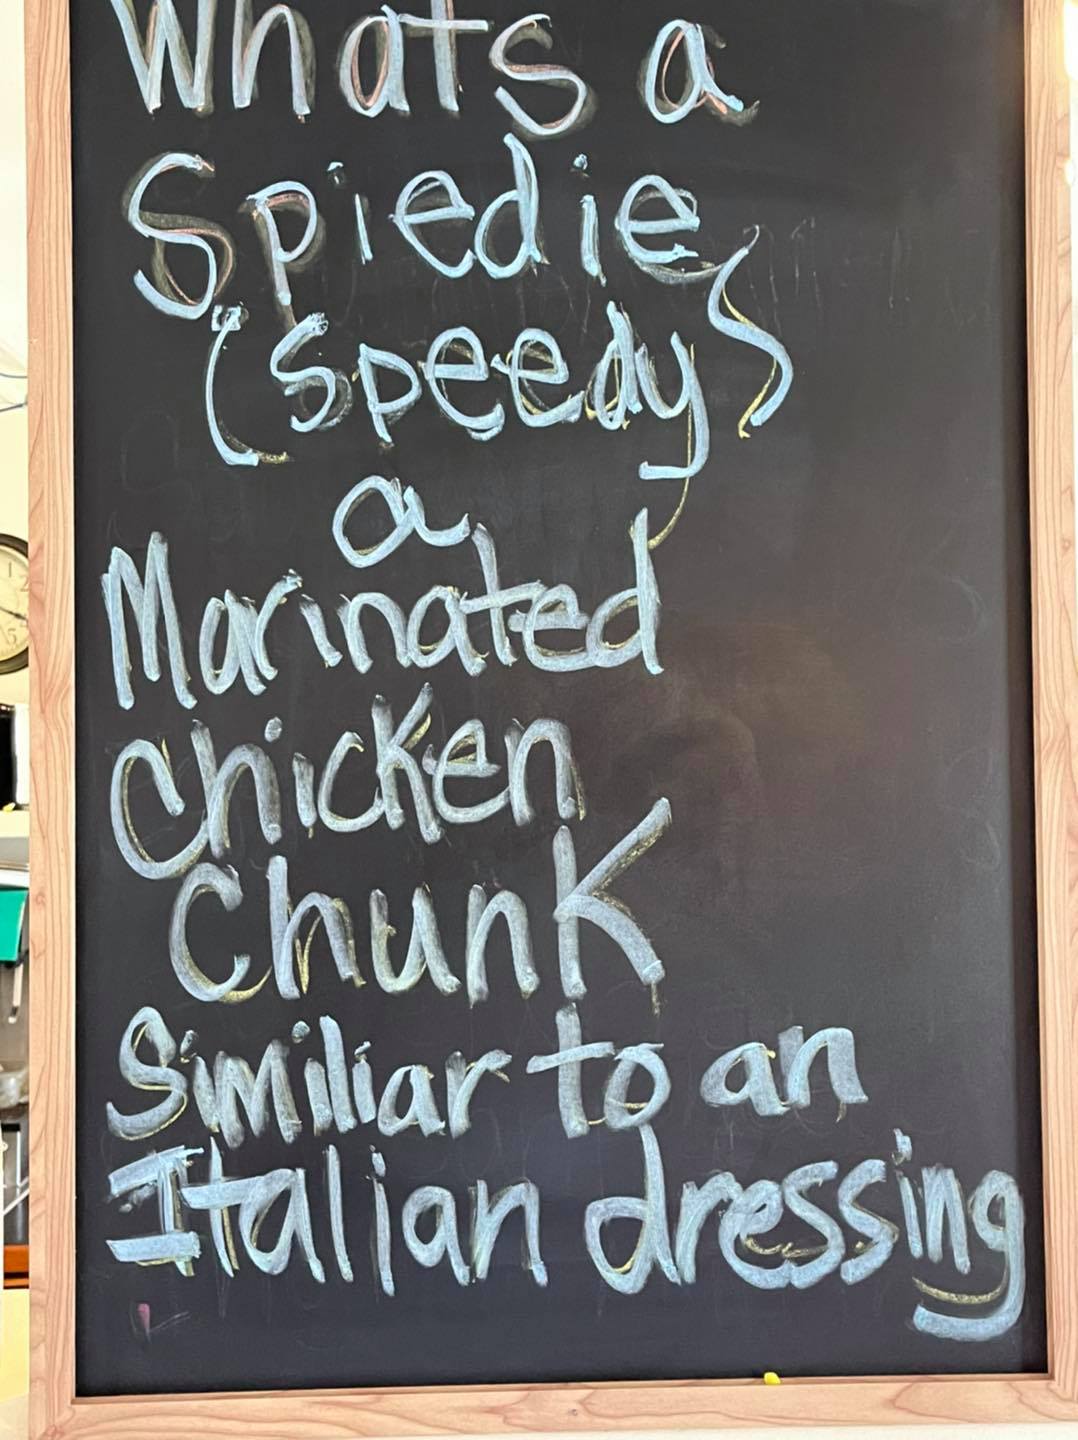 Whats a
Spiedie
(Speedy)
a
Marinated
Chicken
Chunk
Similiar to an
Italian dressing